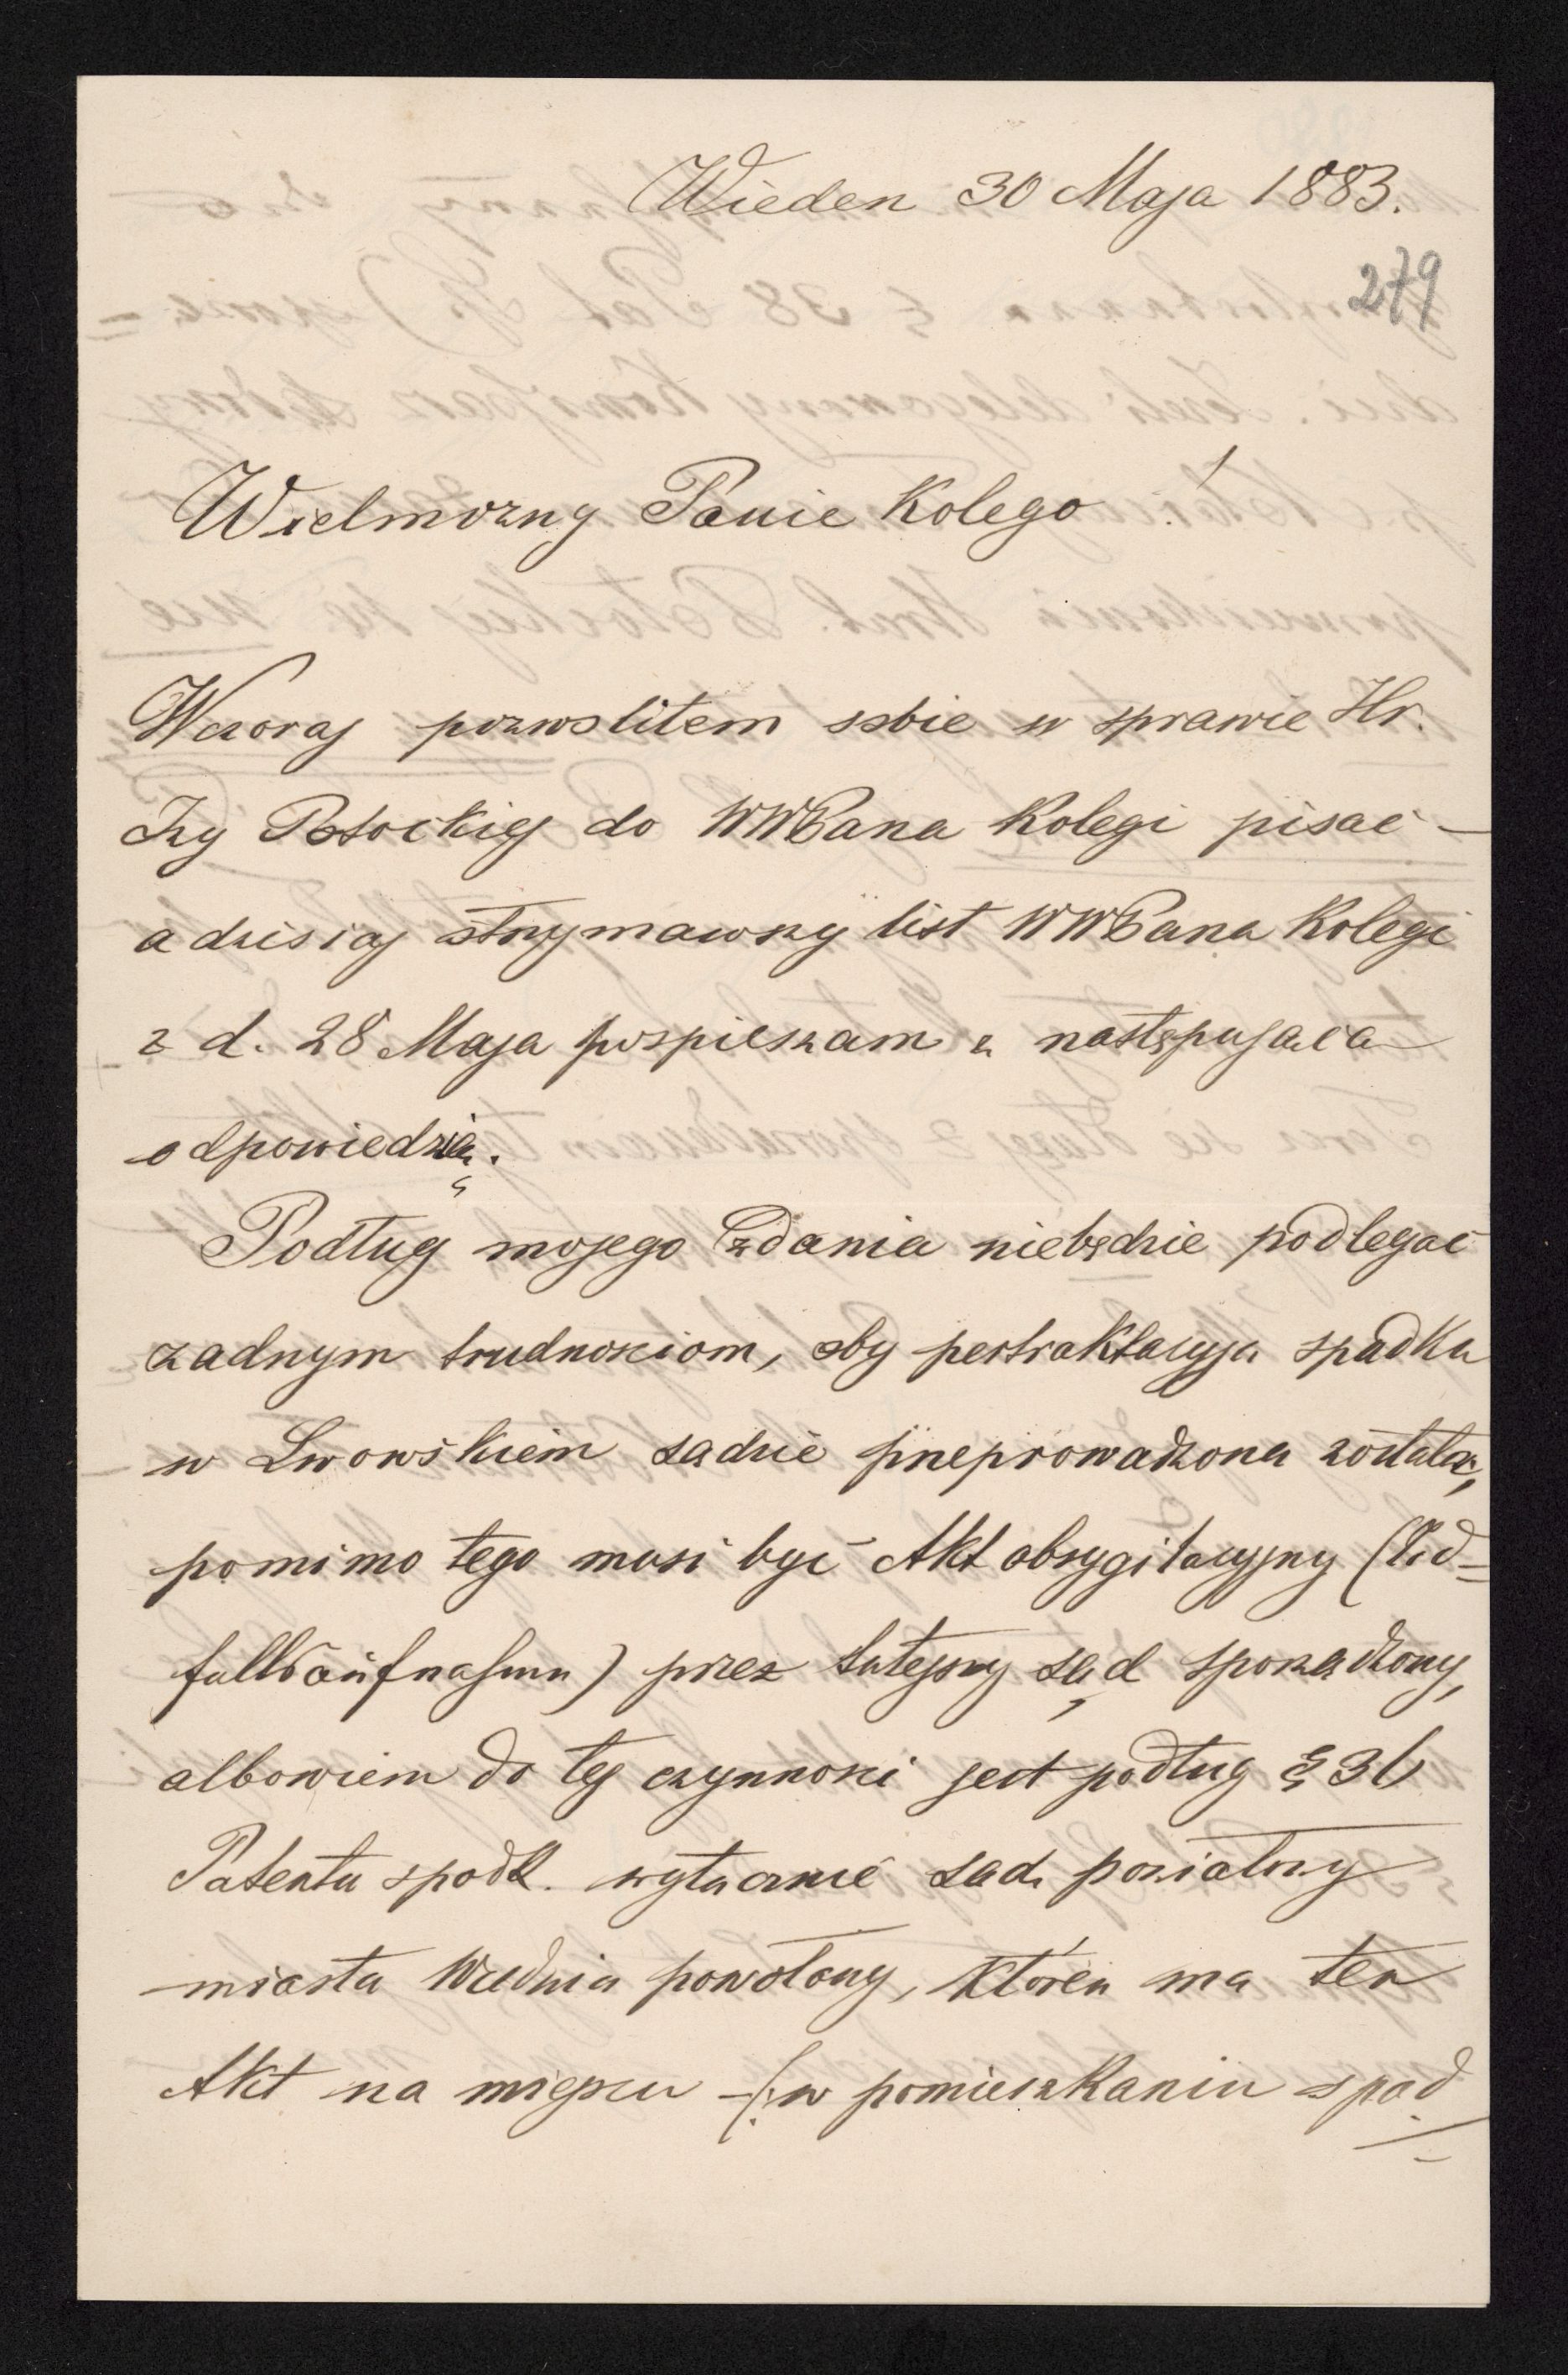 Wieden 30 Maja 1883.
279
Wielmozny Panie Kolego!
Wczoraj pozwolitem sobie w sprawie Hr.
Izy Potockiej do WWPana Kolegi pisać —
a dzisiaj otrzymawszy list WWPana Kolegi
z d. 28 Maja pospieszam z następujaca
odpowiedzią.
Podług mojego zdania niebędzie podlegać
zadnym trudnosciom, aby pertraktacyja spadku
w Lwowskiem sadzie przeprowadzona została,
pomimo tego musi być Akt obsygilacyjny (Tod=
fallsaufnahme) przez tutejszy sąd sporządzony,
albowiem do tej czynnosci jest podług §
Patentu spadk. wyłącznie sad powiatowy
miasta Wiednia powołany, któren ma ten
Akt na miejscu (: w pomieszkaniu spad=